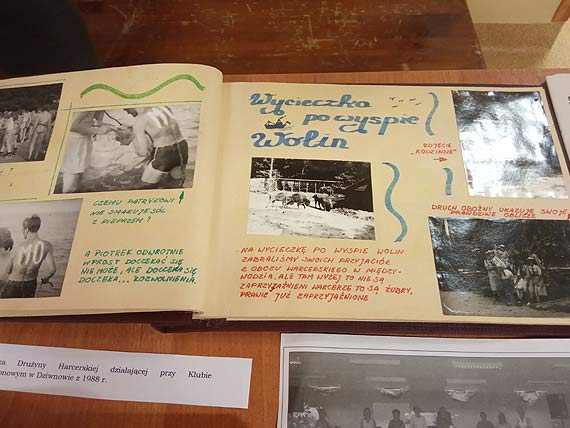 CZEMU PATRYKOWI
NIE SMAKUJE SÓL
Z PIEPRZEM?
A PIOTREK ODWROTNIE
WPROST DOCZEKAĆ SIĘ
NIE MOŻE, ALE DOCZEKA SIĘ
DOCZEKA...
Wycieczka
po wyspie
Wolin
NA WYCIECZKĘ PO WYSPIE WOLIN
ZABRALIŚMY SWOICH PRZYJACIÓŁ
Z OBOZU HARCERSKIEGO W MIĘDZY-
WODZIU, ALE TAM WYŻEJ TO NIE SĄ
ZAPRZYJAŹNIENI HARCERZE TO SĄ ŻUBRY,
PRAWIE JUŻ ZAPRZYJAŹNIONE
ZDJĘCIE
„RODZINNE”
DRUCH OBOŹNY UKAZUJE SWOJE
PRAWDZIWE OBLICZE
Drużyny Harcerskiej działającej przy Klubie
w Dziwnowie z 1988 r.